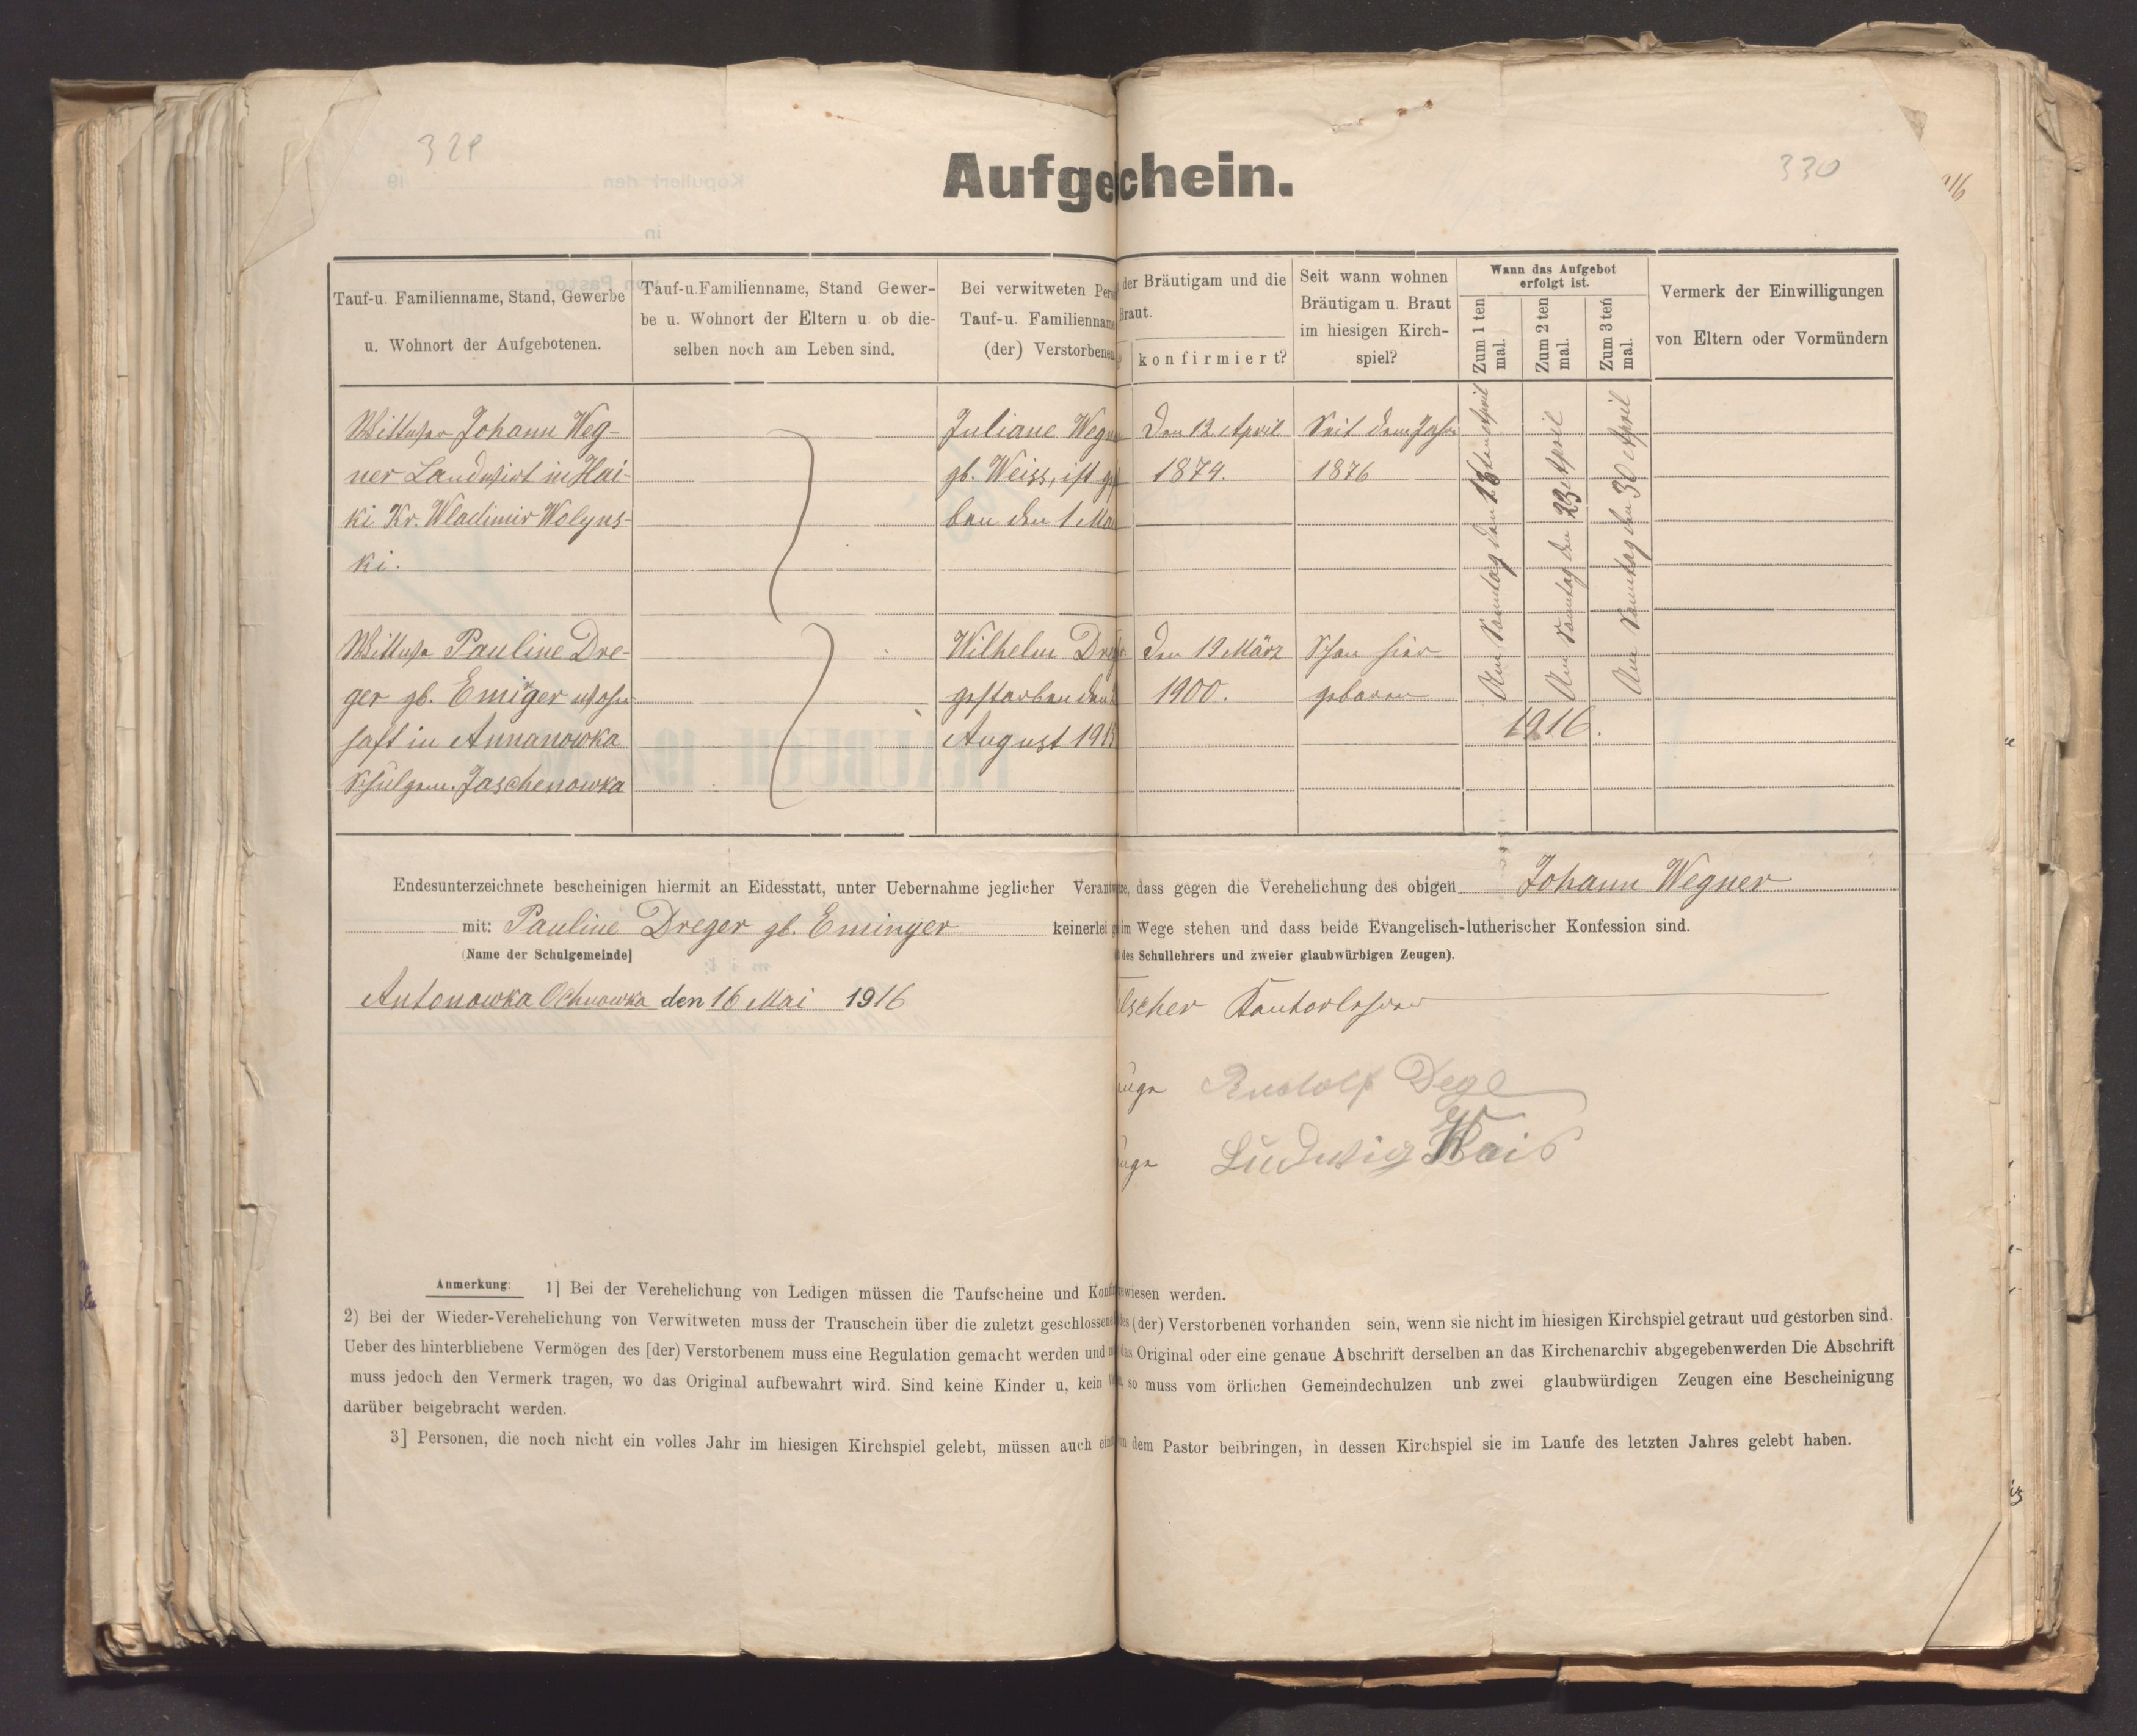 329
330
Aufge chein.
Tauf-u. Familienname, Stand, Gewerbe
u. Wohnort der Aufgebotenen.
Tauf-u.Familienname, Stand Gewer-
be u. Wohnort der Eltern u. ob die-
selben noch am Leben sind.
Bei verwitweten Pers
Tauf-u. Familienname
(der) Verstorbenen
der Bräutigam und die
Braut.
konfirmiert?
Seit wann wohnen
Bräutigam u. Braut
im hiesigen Kirch-
spiel?
Wann das Aufgebot
erfolgt ist.
Zum 1 ten
mal.
Zum 2 ten
mal.
Zum 3 ten
mal.
Vermerk der Einwilligungen
von Eltern oder Vormündern
Wittwer Johann Weg-
ner Landwirt in Hai-
ki Kr. Wladimir Wolyns-
ki.
Juliane Wegn
gb. Weiss, ist ge
ben den 1 Mai
Den 12 April
1874.
Seit dem Jahre
1876
Am Sonntag den 23 April
Am Sonntag den 30 April
1916.
Wittwe Pauline Dre-
ger gb. Eminger wohn
haft in Annanowka
Schulgem. Jaschenowka
Wilhelm Dreg
gestorben den
August 1915
Den 19 März
1900.
Schon hier
geboren
Endesunterzeichnete bescheinigen hiermit an Eidesstatt, unter Uebernahme jeglicher Verant , dass gegen die Verehelichung des obigen Johann Wegner
mit: Pauline Dreger gb. Eminger keinerlei im Wege stehen und dass beide Evangelisch-lutherischer Konfession sind.
(Name der Schulgemeinde] des Schullehrers und zweier glaubwürbigen Zeugen).
Antonowka Ochnowka den 16 Mai 1916
lscher Kantorlehrer
euge Rudolf Dege
uge Ludwig Wais
Anmerkung: 1] Bei der Verehelichung von Ledigen müssen die Taufscheine und Konf ewiesen werden.
2) Bei der Wieder-Verehelichung von Verwitweten muss der Trauschein über die zuletzt geschlossene des (der) Verstorbenen vorhanden sein, wenn sie nicht im hiesigen Kirchspiel getraut uud gestorben sind.
Ueber des hinterbliebene Vermögen des [der) Verstorbenem muss eine Regulation gemacht werden und das Original oder eine genaue Abschrift derselben an das Kirchenarchiv abgegebenwerden Die Abschrift
muss jedoch den Vermerk tragen, wo das Original aufbewahrt wird. Sind keine Kinder u, kein , so muss vom örlichen Gemeindechulzen unb zwei glaubwürdigen Zeugen eine Bescheinigung
darüber beigebracht werden.
3] Personen, die noch nicht ein volles Jahr im hiesigen Kirchspiel gelebt, müssen auch ein dem Pastor beibringen, in dessen Kirchspiel sie im Laufe des letzten Jahres gelebt haben.